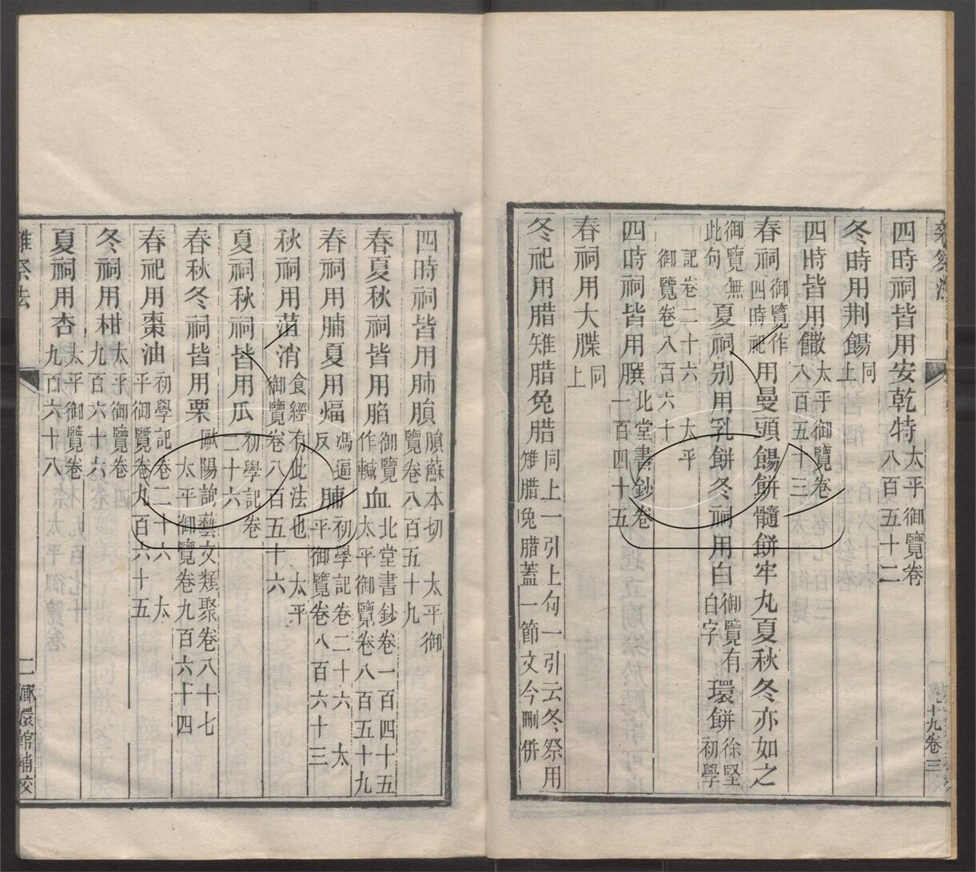 四時祠皆用安乾特太平御覽卷八百五十二
冬時用荆餳同上
四時皆用饊太平御覽卷八百五十三
春祠御覽作四時祀用曼頭餳餅髓餅牢丸夏秋冬亦如之
御覽無此句夏祠别用乳餅冬祠用白御覽有白字環餅徐堅初學
記卷二十六太平御覽卷八百六十
四時祠皆用膶北堂書鈔卷一百四十五
春祠用大䐑同上
冬祀用腊雉腊兔腊同上一引上句一引云冬祭用雉腊兔腊蓋一節文今刪併
九卷三
四時祠皆用肺䐄蘇本切太平御覽卷八百五十九
春夏秋祠皆用䐄御覽作䘓血北堂書鈔卷一百四十五太平御覽卷八百五十九
春祠用脯夏用煏馮逼反脯初學記卷二十六太平御覽卷八百六十三
秋祠用葅消食經有此法也太平御覽卷八百五十六
夏祠秋祠皆用瓜初學記卷二十六
春秋冬祠皆用栗歐陽詢藝文類聚卷八十七太平御覽卷九百六十四
春祀用棗油初學記卷二十六太平御覽卷九百六十五
冬祠用柑太平御覽卷九百六十六
夏祠用杏太平御覽卷九百六十八
雜祭法
二
嫏嬛館補校